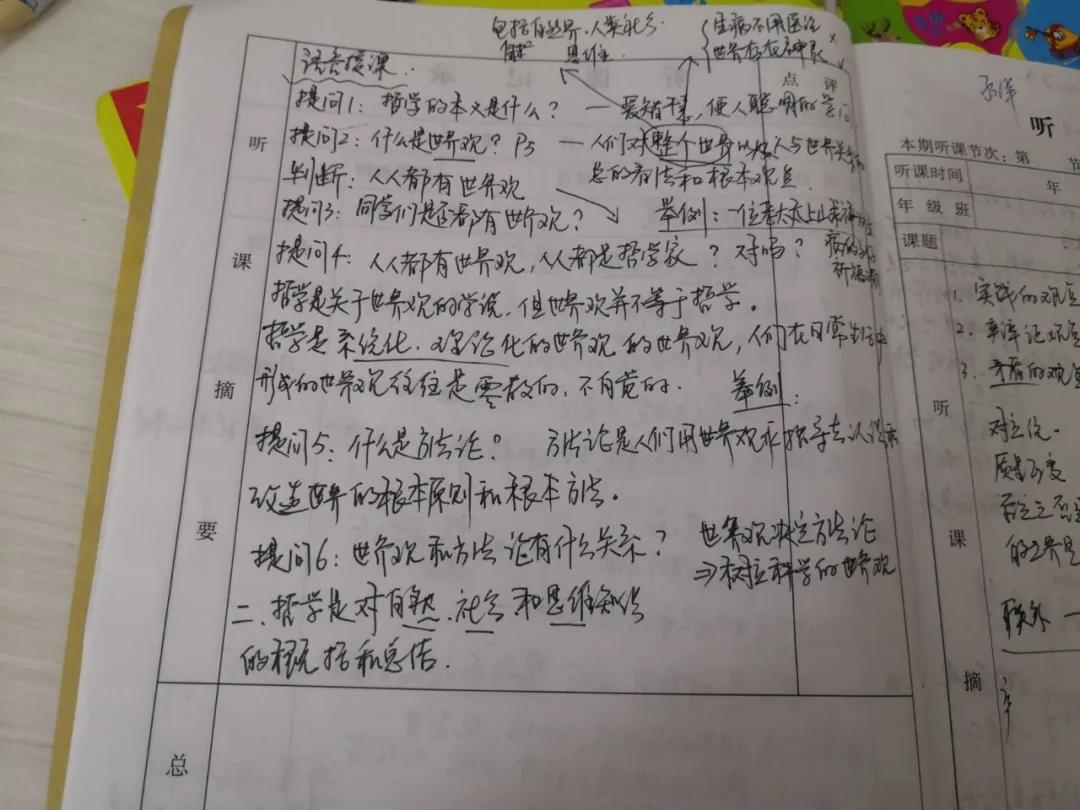 包括自然界、人类社会
思维
生病不用医治 ×
世界存在神灵
语言授课.
点评
提问1: 哲学的本义是什么? — 爱智慧, 使人聪明的学问
提问2: 什么是世界观? P3 — 人们对整个世界以及人与世界关系的
总的看法和根本观点.
判断: 人人都有世界观
提问3: 同学们是否都有世界观? 举例: 一位老太太上山求神
病的
提问4: 人人都有世界观, 人人都是哲学家? 对吗?
哲学是关于世界观的学说, 但世界观并不等于哲学。
哲学是系统化、理论化的世界观的世界观, 人们在日常生活中
形成的世界观往往是零散的, 不自觉的. 举例:
提问5: 什么是方法论? 方法论是人们用世界观作指导去认识和
改造世界的根本原则和根本方法。
提问6: 世界观和方法论有什么关系? 世界观决定方法论
⇒ 树立科学的世界观
二、哲学是对自然、社会和思维知识
的概括和总结.
听
课
摘
要
总
听
本期听课节次: 第 节
听课时间 年
年级班
课题
1. 实践的观点
2. 辩证论观点
3. 矛盾的观点
对立统一
质量互变
否定之否定
联系一
听
课
摘